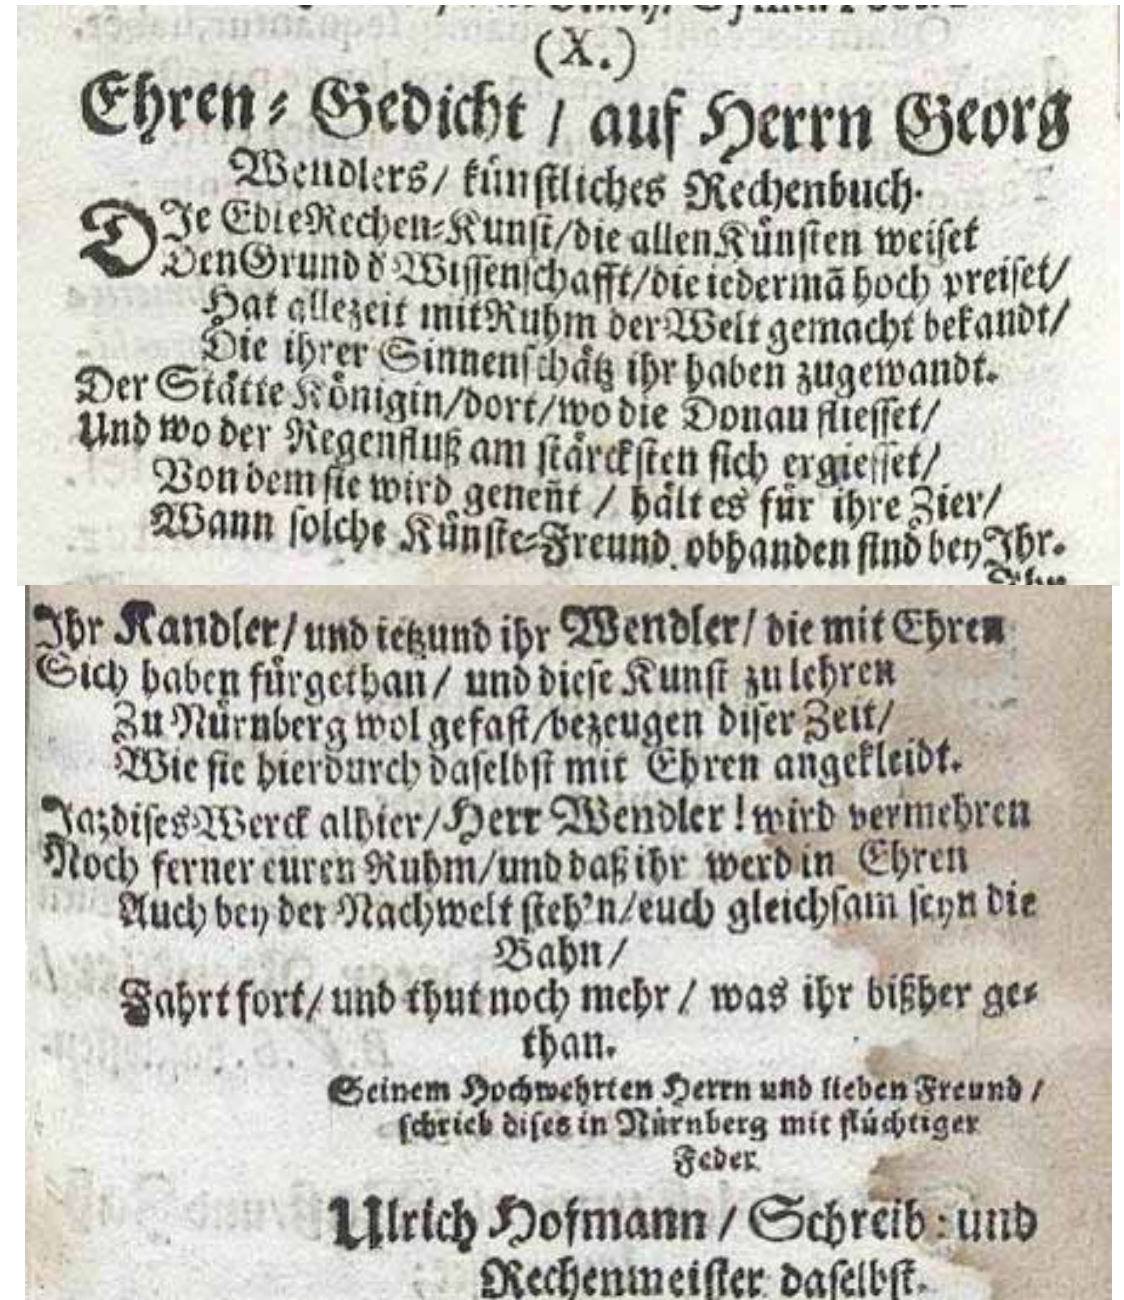 (X.)
Ehren-Gedicht / auf Herrn Georg
Wendlers / künstliches Rechenbuch.
DJe Edle Rechen-Kunst/die allen Künsten weiset
Den Grund d Wissenschafft/die iedermã hoch preiset/
Hat allezeit mit Ruhm der Welt gemacht bekandt/
Die ihrer Sinnenschätz ihr haben zugewandt.
Der Stätte Königin/dort/wo die Donau fliesset/
Und wo der Regenfluß am stärcksten sich ergiesset/
Von dem sie wird geneñt / hält es für ihre Zier/
Wann solche Künste-Freund obhanden sind bey Jhr.
Jhr Kandler/ und ietzund ihr Wendler/ die mit Ehren
Sich haben fürgethan/ und diese Kunst zu lehren
Zu Nürnberg wol gefast/bezeugen diser Zeit/
Wie sie hierdurch daselbst mit Ehren angekleidt.
Ja; dises Werck alhier/Herr Wendler! wird vermehren
Noch ferner euren Ruhm/und daß ihr werd in Ehren
Auch bey der Nachwelt steh'n/euch gleichsam seyn die
Bahn/
Fahrt fort/ und thut noch mehr / was ihr bißher ge-
than.
Seinem Hochwehrten Herrn und lieben Freund /
schrieb dises in Nürnberg mit flüchtiger
Feder
Ulrich Hofmann / Schreib- und
Rechenmeister daselbst.